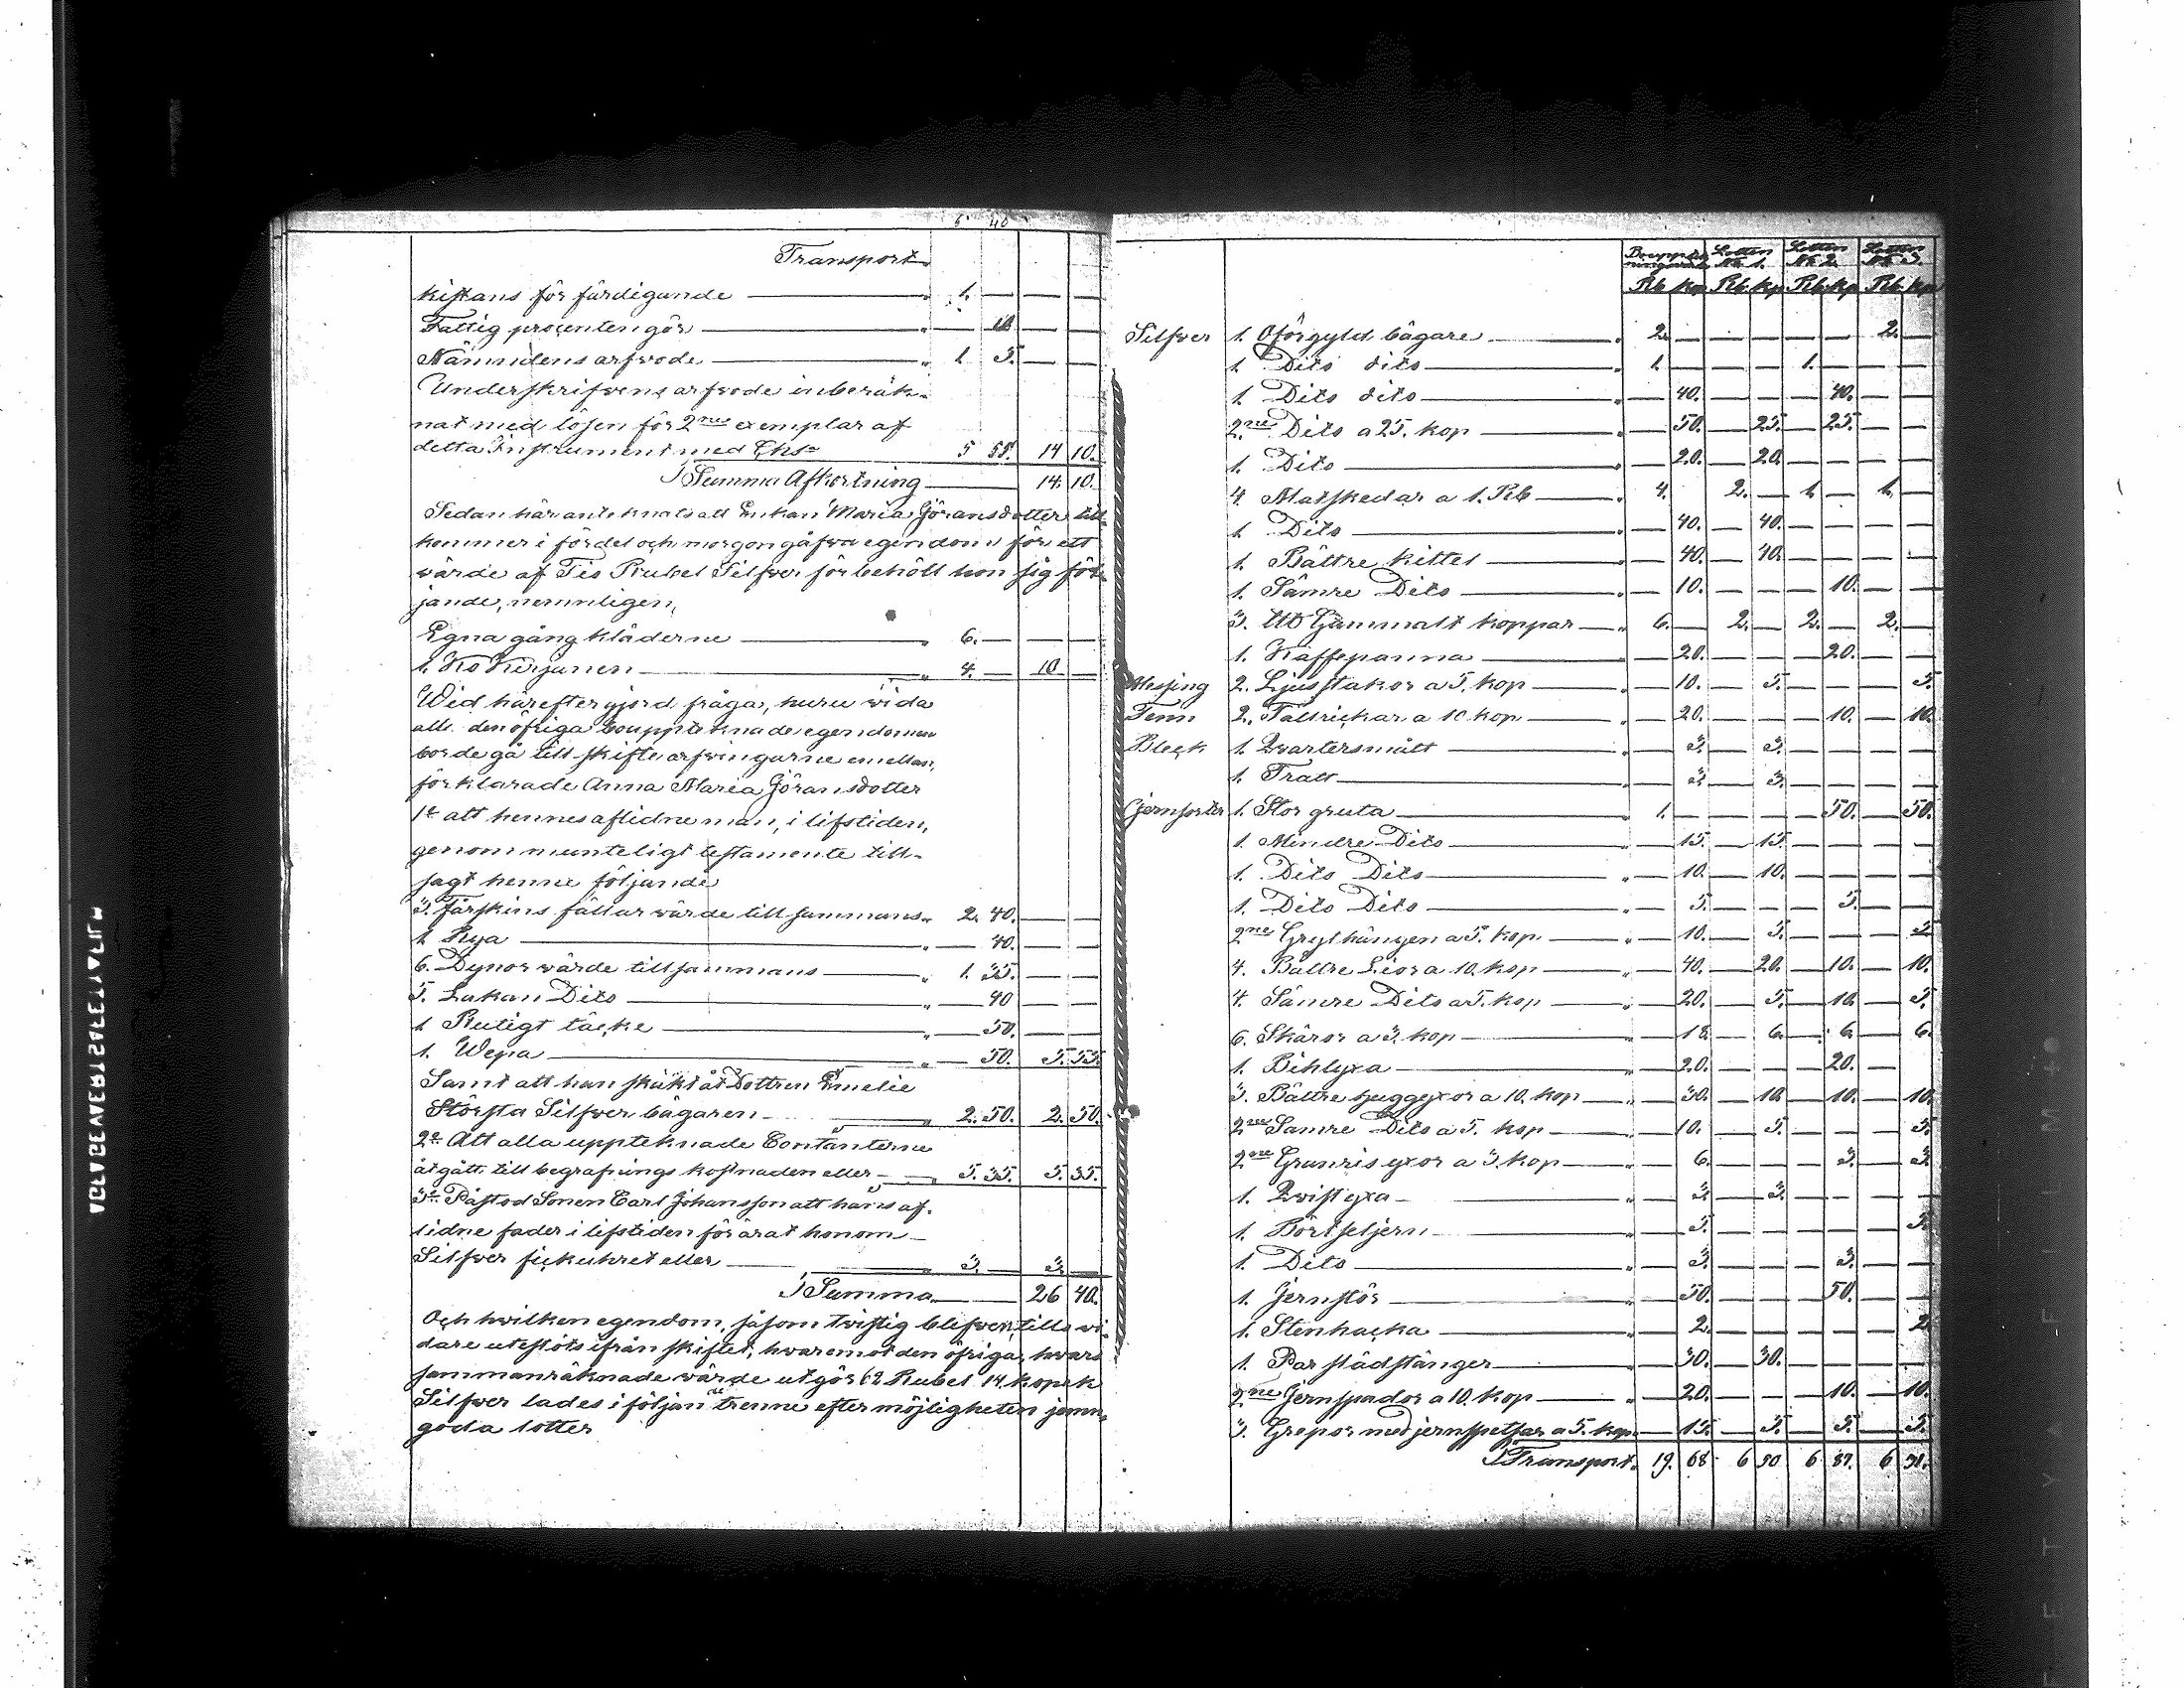 6 40
Transport
kistans för färdigande — 1. — — —
Fattig procenten gör — — 18 — —
Nämndens arfvode — 1. 5. —
Underskrifvens arfvode inberäk-
nat med lösen för 2ne exemplar af
detta Instrument med Chs 5 55. 14 10.
Summa Afkortning — 14. 10.
Sedan här anteknats att Enkan Maria Göransdotter till-
kommer i fördel och morgongåfva egendom för ett
wärde af Tio Rubel Silfver förbehöll hon sig föl-
jande, nemnligen,
Egna gång kläderne — 6. — — —
1. Ko Kirjanen — 4. — 10 —
Wid härefter gjord fråga, huru wida
all den öfriga bouppteknade egendomen
borde gå till skifte arfvingarne emellan,
förklarade Anna Maria Göransdotter
1o att hennes aflidne man, i lifstiden,
genom munteligt testamente till-
sagt henne följande
3. Fårskins fällar wärde till sammans 2. 40. — —
1. Rya — — 40. — —
6. Dynor wärde tillsammans — 1. 35. — —
5. Lakan Dito — — 40 — —
1. Rutigt täcke — — 50. — —
1. Wepa — — 50. 5. 55.
Samt att han skänkt åt Dottren Emelie
Största Silfver bägaren — 2. 50. 2. 50.
2o Att alla uppteknade Contanterne
åtgått till begrafnings kostnaden eller — 5. 35. 5. 35.
3o Påstod Sonen Carl Johansson att hans af-
lidne fader i lifstiden förärat honom
Silfver fickuhret eller — 3. — 3. —
Summa — 26 40.
Och hwilken egendom, såsom twistig blefven, tills wi-
dare uteslöts ifrån skiftet, hwaremot den öfriga, hwars
sammanräknade wärde utgör 62 Rubel 14 kopek
Silfver lades i följande trenne efter möjligheten jemn-
goda lotter
Lotten No 1. Lotten No 2. Lotten No 3.
Rb. kp. Rb. kp. Rb. kp. Rb. kp.
Silfver 1. Oförgyld bägare — 2. — — — — — 2. —
1. Dito dito — 1. — — — 1. — — —
1. Dito dito — — 40. — — — 40. — —
2ne Dito a 25. kop — — 50. — 25. — 25. — —
1. Dito — — 20. — 20. — — — —
4. Matskedar a 1. Rb — 4. 2. — 1. — 1. —
1. Dito — — 40. — 40. — — — —
1. Bättre kittel — — 40. — 40. — — — —
1. Sämre Dito — — 10. — — — 10. — —
3. Gammalt koppar — 6. — 2. — 2. — 2. —
1. Kaffepanna — — 20. — — — 20. — —
Messing 2. Ljusstakor a 5. kop — — 10. — 5. — — — 5.
Tenn 2. Tallrickar a 10 kop — — 20. — — — 10. — 10.
Bleck 1. Qvartersmått — — 3. — 3. — — — —
1. Tratt — — 3. — 3. — — — —
Gjernsorter 1. Stor gruta — 1. — — — — 50. — 50.
1. Mindre Dito — — 15. — 15. — — — —
1. Dito Dito — — 10. — 10. — — — —
1. Dito Dito — — 5. — — — 5. — —
2ne Grythängen a 5. kop. — — 10. — 5. — — — 5
4. Bättre Lior a 10. kop — — 40. — 20. — 10. — 10.
4. Sämre Dito a 5. kop — — 20. — 5. — 10. — 5.
6. Skäror a 3. kop — — 18. — 6. — 6. — 6.
1. Bihlyxa — — 20. — — — 20. —
3. Bättre huggyxor a 10. kop — — 30. — 10. — 10. — 10.
2ne Sämre Dito a 5. kop — — 10. — 5. — — — 5.
2ne Granris yxor a 3. kop — — 6. — — — 3. — 3.
1. Qvistyxa — — 3. — 3. — — — —
1. — — 5. — — — — — 5.
1. Dito — — 3. — — — 3. — —
1. Jernstör — — 50. — — — 50. — —
1. Stenhacka — — 2. — — — — — 2.
1. Par städstänger — — 30. — 30. — — — —
2ne Jernspador a 10. kop — — 20. — — — 10. — 10.
3. Grepor med jernspetsar a 5. kop. — 15. — 5. — 5. — 5.
Transport. 19. 68. 6 90 6 87. 6